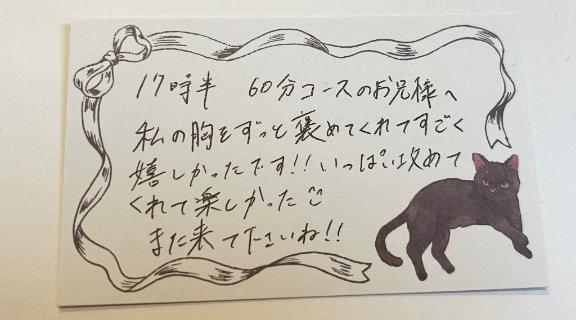 17時半 60分コースのお兄様へ
私の胸をずっと褒めてくれてすごく
嬉しかったです!!いっぱい攻めて
くれて楽しかった
また来て下さいね!!